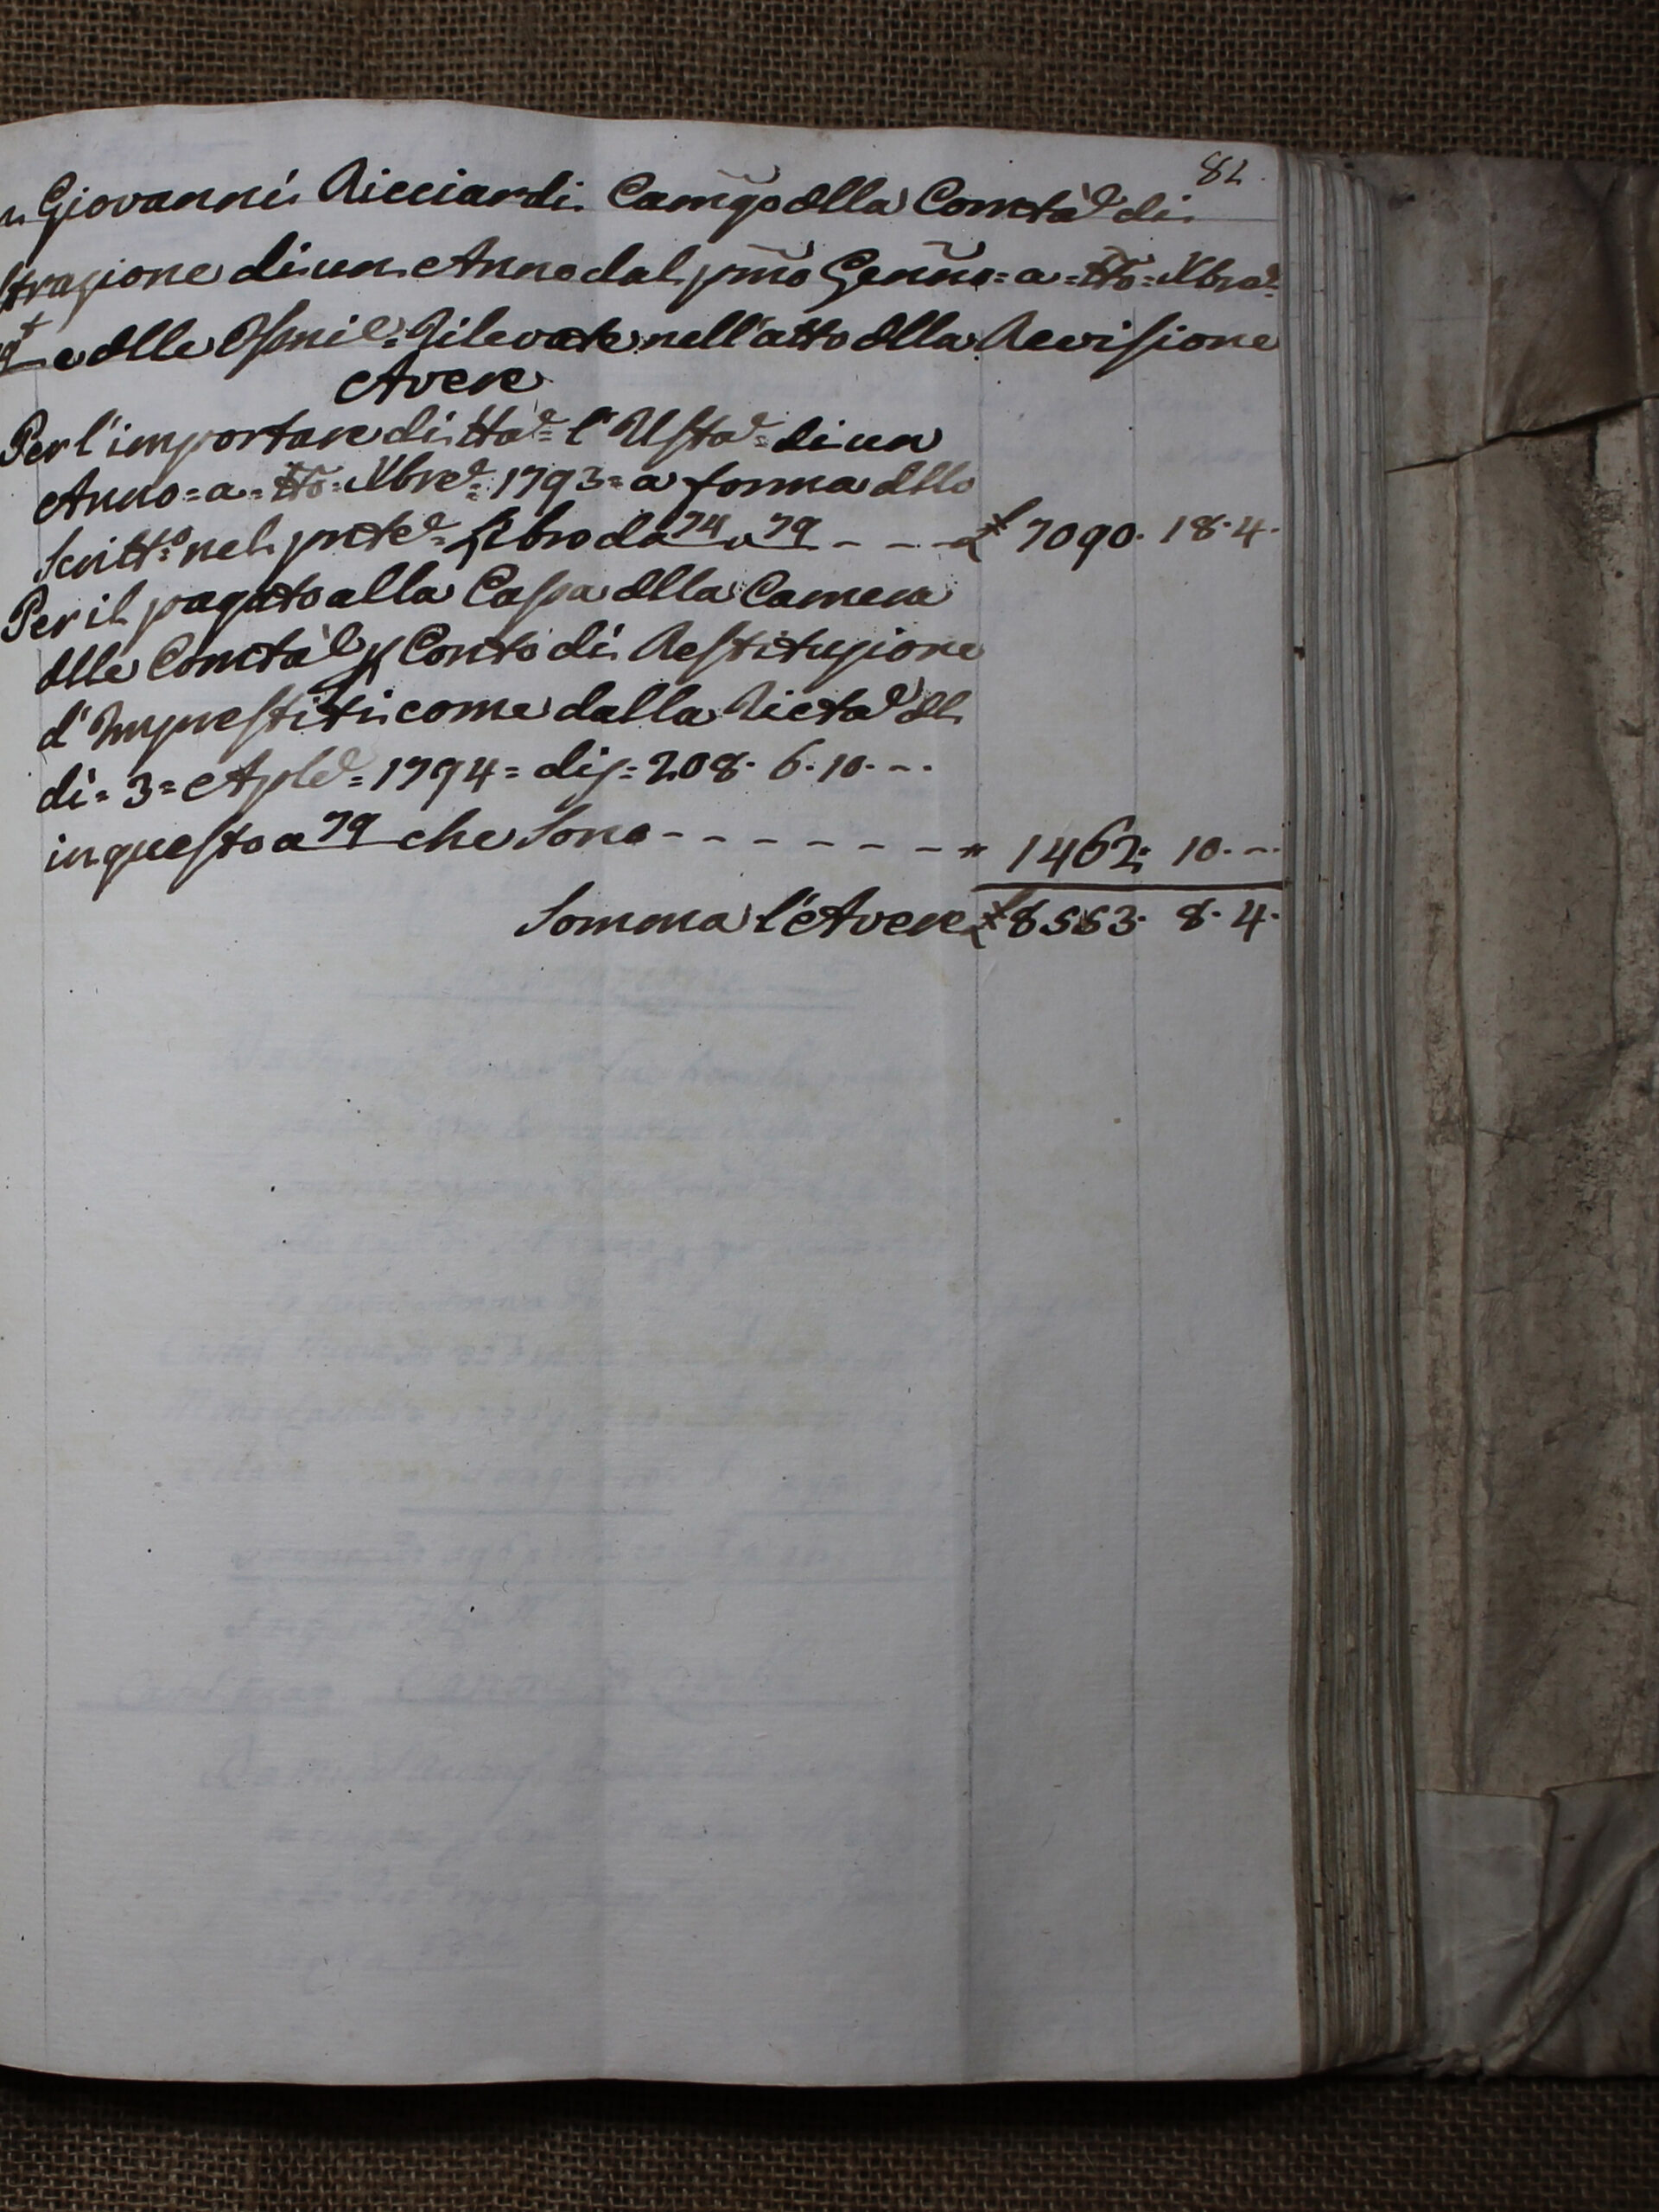 82.
Giovanni Ricciardi Camgo dlla Comtà di
strazione di un Anno dal pmo Genno = a = tto = Xbre =
e dlle Ossni = Rilevate nell'atto dlla Revisione
Avere
Per l'importare di tta = l'Usta = di un
Anno = a = tto = Xbre = 1793 = a forma dllo
Scitto = nel pnte = Libro da 74 a 79 - - - £ 7090. 18. 4.
Per il pagato alla Cassa dlla Camera
dlle Comtà p Conto di Restituzione
d'Imprestiti come dalla Ricta dl
di = 3 = Aple = 1794 = di = 208. 6. 10. --
in questo a 79 che Sono - - - - - - - " 1462. 10. --
Somma l'Avere £ 8553. 8. 4.